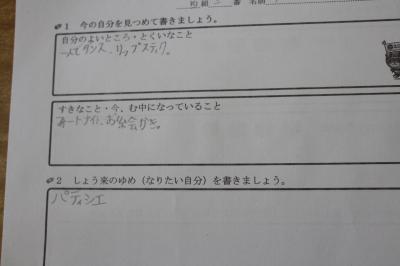 組 番 名前
1 今の自分を見つめて書きましょう。
自分のよいところ・とくいなこと
ダンス、リップスティク。
すきなこと・今、む中になっていること
ートナイト、お絵かき。
2 しょう来のゆめ(なりたい自分)を書きましょう。
パティシエ